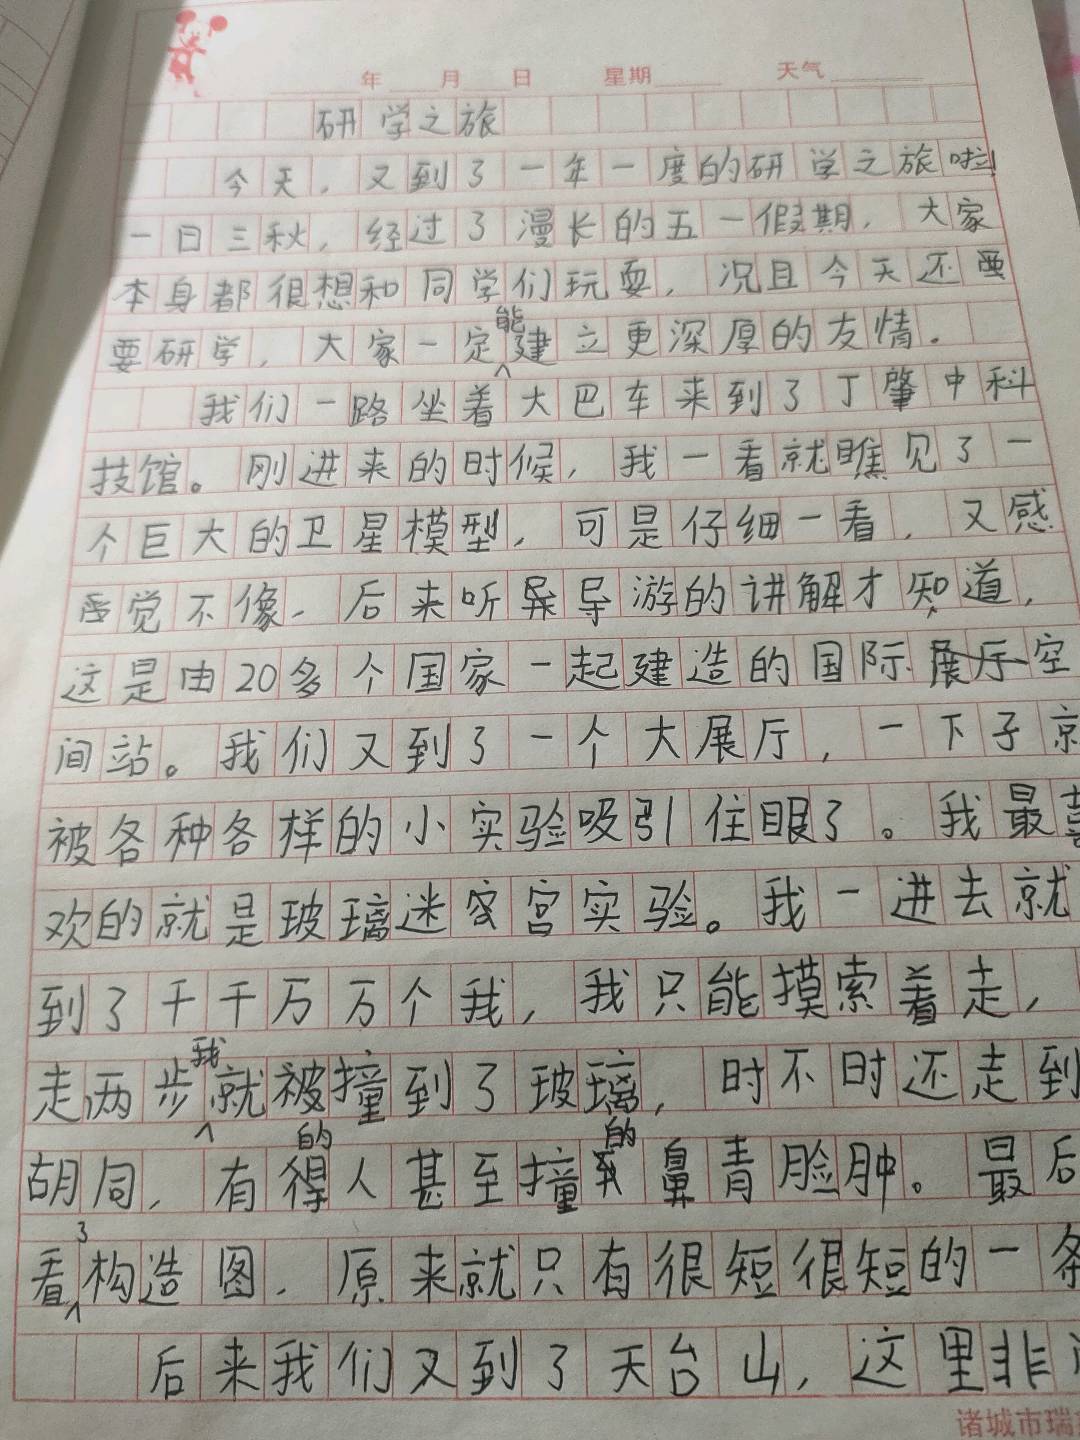 年 月 日 星期 天气
研学之旅
今天，又到了一年一度的研学之旅啦
一日三秋，经过了漫长的五一假期，大家
本身都很想和同学们玩耍，况且今天还要
要研学，大家一定能建立更深厚的友情.
我们一路坐着大巴车来到了丁肇中科
技馆。刚进来的时候，我一看就瞧见了一
个巨大的卫星模型，可是仔细一看，又感
觉不像、后来听导游的讲解才知道，
这是由20多个国家一起建造的国际空
间站。我们又到了一个大展厅，一下子京
被各种各样的小实验吸引住眼了。我最喜
欢的就是玻璃迷宫实验。我一进去就
到了千千万万个我，我只能摸索着走，
走两步我就被撞到了玻璃，时不时还走到
胡同，有的人甚至撞的鼻青脸肿。最后
看了构造图．原来就只有很短很短的一条
后来我们又到了天台山，这里非
诸城市瑞